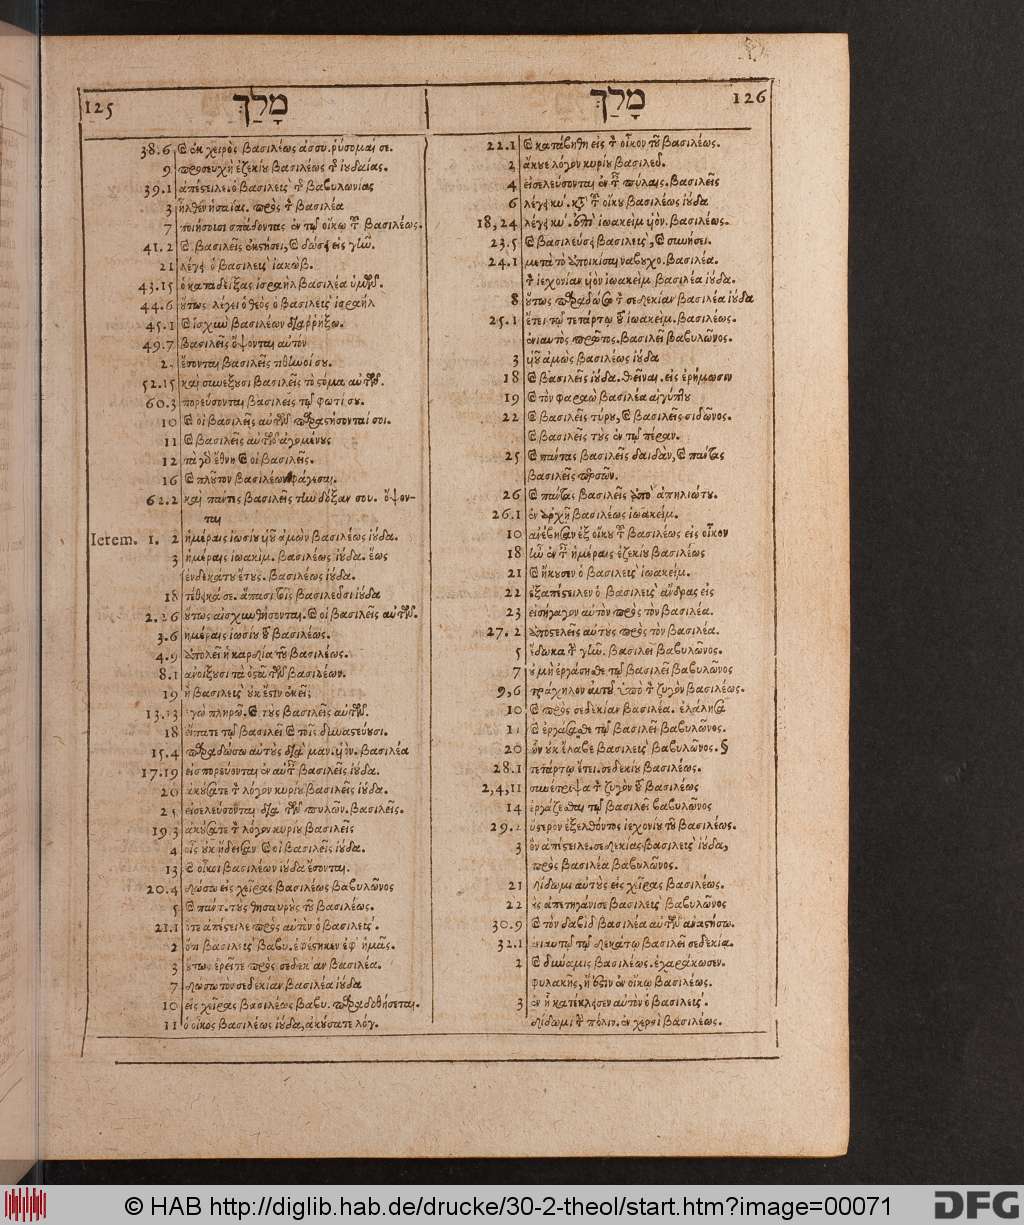 125 מָלַךְ
38.6 καὶ ἐκ χειρὸς βασιλέως ἀσσυ. ῥύσομαί σε.
9 προσευχὴ ἐζεκίου βασιλέως τῆς ἰουδαίας.
39.1 ἀπέστειλε. ὁ βασιλεὺς τῆς βαβυλωνίας
3 ἦλθεν ἡσαΐας. πρὸς τὸν βασιλέα
7 ποιήσουσι σπάδοντας ἐν τῷ οἴκῳ τοῦ βασιλέως.
41.2 καὶ βασιλεῖς ἐκστήσει, καὶ δώσει εἰς γῆν.
21 λέγει ὁ βασιλεὺς ἰακώβ.
43.15 ὁ καταδείξας ἰσραὴλ βασιλέα ὑμῶν.
44.6 οὕτως λέγει ὁ θεὸς ὁ βασιλεὺς ἰσραὴλ
45.1 καὶ ἰσχὺν βασιλέων διαρρήξω.
49.7 βασιλεῖς ὄψονται αὐτὸν
ἔσονται βασιλεῖς τιθηνοί σου.
52.15 καὶ συνέξουσι βασιλεῖς τὸ στόμα αὐτῶν.
60.3 πορεύσονται βασιλεῖς τῷ φωτί σου.
10 καὶ οἱ βασιλεῖς αὐτῶν παραστήσονταί σοι.
11 καὶ βασιλεῖς αὐτῶν ἀγομένους
12 τὰ γὰρ ἔθνη καὶ οἱ βασιλεῖς.
16 καὶ πλοῦτον βασιλέων φάγεσαι.
62.2 καὶ πάντες βασιλεῖς τὴν δόξαν σου. ὄψον-
ται
Ierem. 1. 2 ἡμέραις ἰωσίου υἱοῦ ἀμὼν βασιλέως ἰούδα.
3 ἡμέραις ἰωακὶμ. βασιλέως ἰούδα. ἕως
ἑνδεκάτου ἔτους. βασιλέως ἰούδα.
18 τέθεικά σε. ἅπασι τοῖς βασιλεῦσι ἰούδα
2.26 οὕτως αἰσχυνθήσονται. καὶ οἱ βασιλεῖς αὐτῶν.
3.6 ἡμέραις ἰωσίου τοῦ βασιλέως.
4.9 ἀπολεῖ ἡ καρδία τοῦ βασιλέως.
8.1 ἀνοίξουσι τὰ ὀστᾶ τῶν βασιλέων.
19 ἢ βασιλεὺς οὐκ ἔστιν ἐκεῖ;
13.13 ἐγὼ πληρῶ. καὶ τοὺς βασιλεῖς αὐτῶν.
18 εἴπατε τῷ βασιλεῖ καὶ τοῖς δυναστεύουσι.
15.4 παραδώσω αὐτοὺς διὰ μαν. υἱὸν. βασιλέα
17.19 εἰσπορεύονται ἐν αὐταῖς βασιλεῖς ἰούδα.
20 ἀκούσατε τὸν λόγον κυρίου βασιλεῖς ἰούδα.
25 εἰσελεύσονται διὰ τῶν πυλῶν. βασιλεῖς.
19.3 ἀκούσατε τὸν λόγον κυρίου βασιλεῖς
4 οἷς οὐκ ᾔδεισαν καὶ οἱ βασιλεῖς ἰούδα.
13 καὶ οἶκοι βασιλέων ἰούδα ἔσονται.
20.4 δώσω εἰς χεῖρας βασιλέως βαβυλῶνος
5 καὶ πάντ. τοὺς θησαυροὺς τοῦ βασιλέως.
21.1 ὅτε ἀπέστειλε πρὸς αὐτὸν ὁ βασιλεὺς.
2 ὅτι βασιλεὺς βαβυ. ἐφέστηκεν ἐφ' ἡμᾶς.
3 οὕτως ἐρεῖτε πρὸς σεδεκίαν βασιλέα.
7 δώσω τὸν σεδεκίαν βασιλέα ἰούδα
10 εἰς χεῖρας βασιλέως βαβυ. παραδοθήσεται.
11 ὁ οἶκος βασιλέως ἰούδα, ἀκούσατε λόγ.
מָלַךְ 126
22.1 καὶ κατάβηθι εἰς τὸν οἶκον τοῦ βασιλέως.
2 ἄκουε λόγον κυρίου βασιλεῦ.
4 εἰσελεύσονται ἐν ταῖς πύλαις. βασιλεῖς
6 λέγει κύ. κατὰ τοῦ οἴκου βασιλέως ἰούδα
18,24 λέγει κύ. ἐπὶ ἰωακεὶμ υἱὸν. βασιλέως.
23.5 καὶ βασιλεύσει βασιλεὺς, καὶ συνήσει.
24.1 μετὰ τὸ ἀποικίσαι ναβουχο. βασιλέα.
τὸν ἰεχονίαν υἱὸν ἰωακεὶμ βασιλέα ἰούδα.
8 οὕτως παραδώσω τὸν σεδεκίαν βασιλέα ἰούδα
25.1 ἔτει τῷ τετάρτῳ τοῦ ἰωακείμ. βασιλέως.
ἐνιαυτὸς πρῶτος. βασιλεῖ βαβυλῶνος.
3 υἱοῦ ἀμὼς βασιλέως ἰούδα
18 καὶ βασιλεῖς ἰούδα. θεῖναι. εἰς ἐρήμωσιν
19 καὶ τὸν φαραὼ βασιλέα αἰγύπτου
22 καὶ βασιλεῖς τύρου, καὶ βασιλεῖς σιδῶνος.
καὶ βασιλεῖς τοὺς ἐν τῷ πέραν.
25 καὶ πάντας βασιλεῖς δαιδὰν, καὶ πάντας
βασιλεῖς περσῶν.
26 καὶ πάντας βασιλεῖς ἀπὸ ἀπηλιώτου.
26.1 ἐν ἀρχῇ βασιλέως ἰωακείμ.
10 ἀνέβησαν ἐξ οἴκου τοῦ βασιλέως εἰς οἶκον
18 ἦν ἐν ταῖς ἡμέραις ἐζεκίου βασιλέως
21 καὶ ἤκουσεν ὁ βασιλεὺς ἰωακείμ.
22 ἐξαπέστειλεν ὁ βασιλεὺς ἄνδρας εἰς
23 εἰσήγαγον αὐτὸν πρὸς τὸν βασιλέα.
27.2 ἀποστελεῖς αὐτοὺς πρὸς τὸν βασιλέα.
5 ἔδωκα τὴν γῆν. βασιλεῖ βαβυλῶνος.
7 οὐ μὴ ἐργάσησθε τῷ βασιλεῖ βαβυλῶνος
9,6 τράχηλον αὐτοῦ ὑπὸ τὸν ζυγὸν βασιλέως.
10 καὶ πρὸς σεδεκίαν βασιλέα. ἐλάλησα
καὶ ἐργάσασθε τῷ βασιλεῖ βαβυλῶνος.
20 ὧν οὐκ ἔλαβε βασιλεὺς βαβυλῶνος. §
28.1 τετάρτῳ ἔτει. σεδεκίου βασιλέως.
2,4,11 συνέτριψα τὸν ζυγὸν τοῦ βασιλέως
14 ἐργάζεσθαι τῷ βασιλεῖ βαβυλῶνος
29.2 ὕστερον ἐξελθόντος ἰεχονίου τοῦ βασιλέως.
3 ὃν ἀπέστειλε. σεδεκίας βασιλεὺς ἰούδα,
πρὸς βασιλέα βαβυλῶνος.
21 δίδωμι αὐτοὺς εἰς χεῖρας βασιλέως.
22 οὓς ἀπετηγάνισε βασιλεὺς βαβυλῶνος
30.9 καὶ τὸν δαβὶδ βασιλέα αὐτῶν ἀναστήσω.
32.1 ἐνιαυτῷ τῷ δεκάτῳ βασιλεῖ σεδεκία.
2 καὶ δύναμις βασιλέως. ἐχαράκωσεν.
φυλακῆς, ἥ ἐστιν ἐν οἴκῳ βασιλέως.
3 ἐν ᾗ κατέκλεισεν αὐτὸν ὁ βασιλεὺς.
δίδωμι τὴν πόλιν. ἐν χερσὶ βασιλέως.
© HAB http://diglib.hab.de/drucke/30-2-theol/start.htm?image=00071
DFG